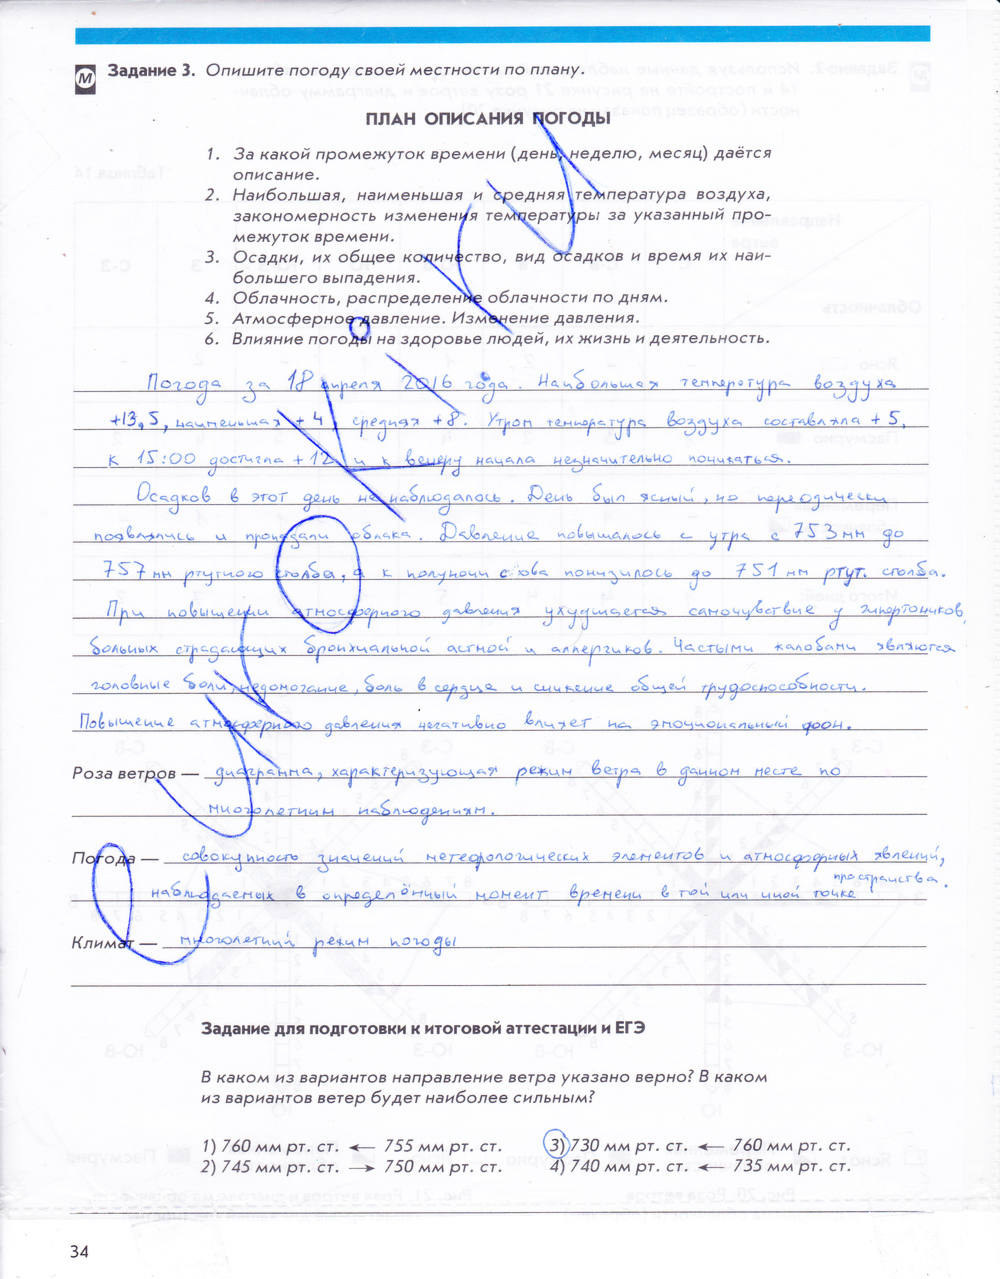 Задание 3. Опишите погоду своей местности по плану.
ПЛАН ОПИСАНИЯ ПОГОДЫ
1. За какой промежуток времени (день, неделю, месяц) даётся
описание.
2. Наибольшая, наименьшая и средняя температура воздуха,
закономерность изменения температуры за указанный про-
межуток времени.
3. Осадки, их общее количество, вид осадков и время их наи-
большего выпадения.
4. Облачность, распределение облачности по дням.
5. Атмосферное давление. Изменение давления.
6. Влияние погоды на здоровье людей, их жизнь и деятельность.
Погода за 18 апреля 2016 года. Наибольшая температура воздуха
+13,5, наименьшая +4, средняя +8. Утром температура воздуха составляла +5,
к 15:00 достигла +12 и к вечеру начала незначительно понижаться.
Осадков в этот день не наблюдалось. День был ясный, но переодически
появлялись и пропадали облака. Давление повышалось с утра с 753 мм до
757 мм ртутного столба, а к полуночи снова понизилось до 751 мм ртут. столба.
При повышении атмосферного давления ухудшается самочувствие у гипертоников,
больных страдающих бронхиальной астмой и аллергиков. Частыми жалобами являются
головные боли, недомогание, боль в сердце и снижение общей трудоспособности.
Повышение атмосферного давления негативно влияет на эмоциональный фон.
Роза ветров — диаграмма, характеризующая режим ветра в данном месте по
многолетним наблюдениям.
Погода — совокупность значений метеорологических элементов и атмосферных явлений,
наблюдаемых в определённый момент времени в той или иной точке пространства.
Климат — многолетний режим погоды
Задание для подготовки к итоговой аттестации и ЕГЭ
В каком из вариантов направление ветра указано верно? В каком
из вариантов ветер будет наиболее сильным?
1) 760 мм рт. ст. ← 755 мм рт. ст. 3) 730 мм рт. ст. ← 760 мм рт. ст.
2) 745 мм рт. ст. → 750 мм рт. ст. 4) 740 мм рт. ст. ← 735 мм рт. ст.
34